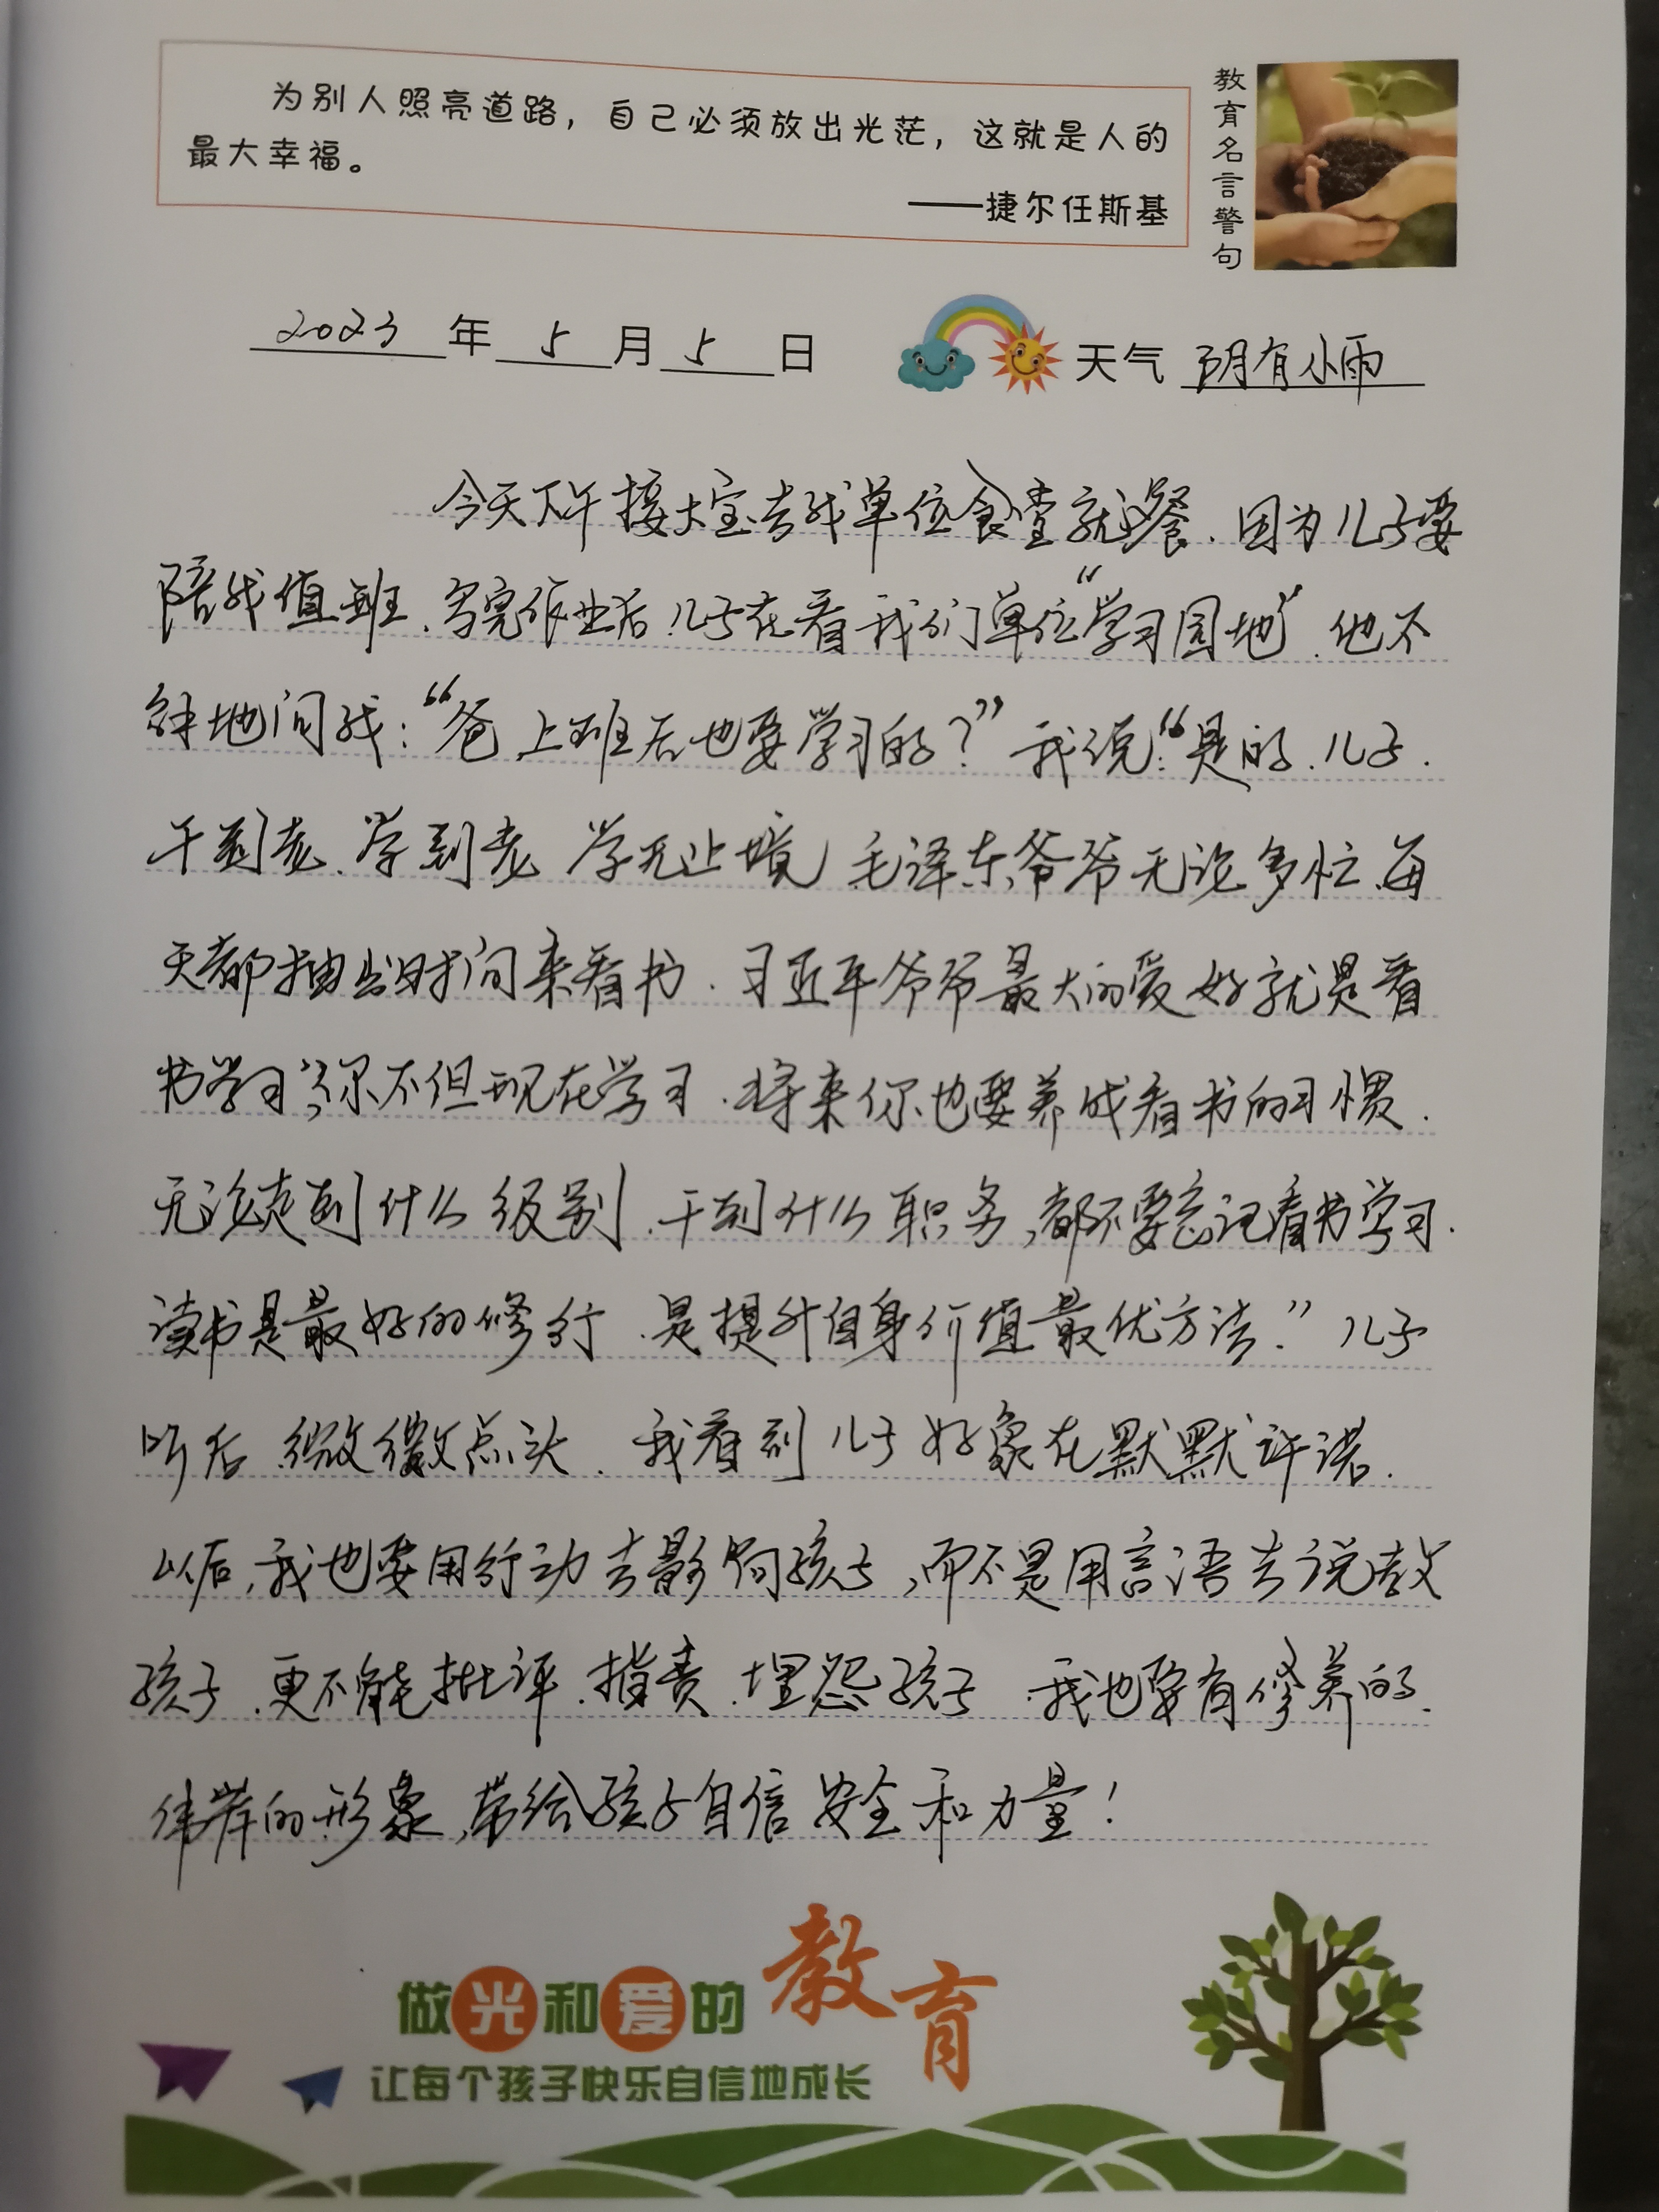 为别人照亮道路，自己必须放出光茫，这就是人的
最大幸福。
——捷尔任斯基
教育名言警句
2023年5月5日
天气 阴有小雨
今天下午接大宝去我单位食堂就餐.因为儿子要
陪我值班.写完作业后儿子在看我们单位“学习园地”.他不
解地问我：“爸,上班后也要学习的？”我说：“是的.儿子.
干到老.学到老 学无止境,毛泽东爷爷无论多忙.每
天都抽出时间来看书.习近平爷爷最大的爱好就是看
书学习”,你不但现在学习.将来你也要养成看书的习惯.
无论走到什么级别.干到什么职务,都不要忘记看书学习.
读书是最好的修行.是提升自身价值最优方法.”儿子
听后 微微点头.我看到儿子好象在默默许诺.
以后,我也要用行动去影响孩子,而不是用言语去说教
孩子.更不能批评.指责.埋怨孩子.我也要有修养的.
伟岸的形象,带给孩子自信 安全和力量！
做光和爱的教育
让每个孩子快乐自信地成长